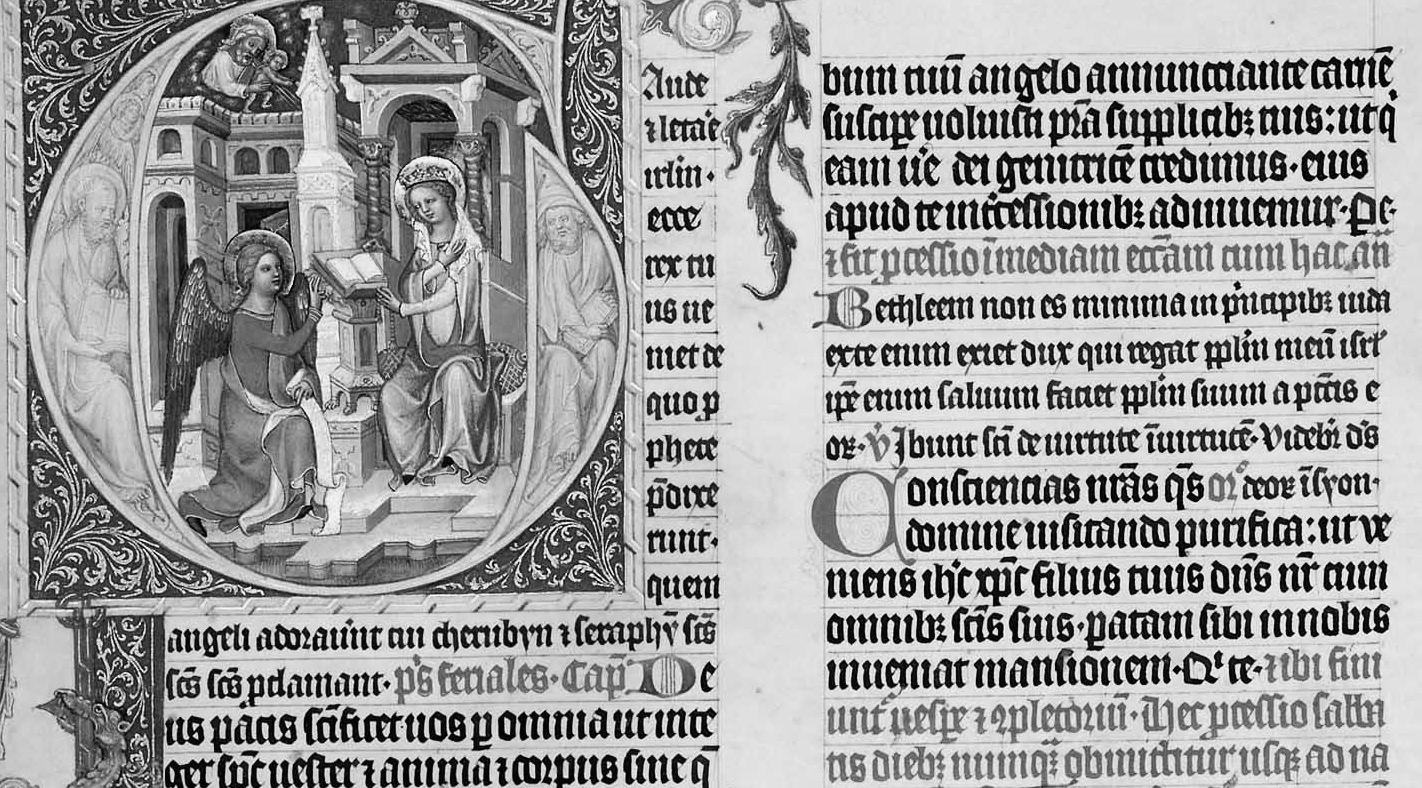 Aude
⁊ letaē
irl̄m·
ecce
rex tu
us ue
niet de
quo ꝓ
phete
p̄dixe
runt·
quem
angeli adorauīt cui cherubyn ⁊ seraphȳ sc̄s
sc̄s sc̄s ꝓclamant· ps̄ feriales· Cap̄ De
us pācis sc̄ificet uos ꝑ omnia ut inte
ger sp̄c uester ⁊ anima ⁊ corpus sine q̄
bum tuū angelo annuncciante carnē
suscipe uoluisti pr̄a supplicibꝫ tuis: ut q̇
eam ūe dei genitricē credimus· eius
apud te int̄cessionibꝫ adiuuemur· Pe·
⁊ fit ꝓcessio ī mediam eccāam cum hac an̄
Bethleem non es minima in pͥncipibꝫ iuda
ex te enim exiet dux qui regat ppl̄m meū isrl̓
ip̄e enim saluum faciet ppl̄m suum a pcc̄tis e
oꝝ· v̓ Ibunt sc̄i de uirtute ī uirtutē· Videbr̄ ds̄
Consciencias nr̄as qs̄ orͦ deoꝝ ī syon·
domine uisitando purifica: ut ve
niens ih̄c xp̄c filius tuus dn̄s nr̄ cum
omnibꝫ sc̄is suis· ꝑatam sibi in nobis
inueniat mansionem· Qͥ te· ⁊ ibi fini
unt̄ uesꝑe ⁊ ꝯpletoriū· Hec ꝓcessio sabba
tis diebꝫ nunqͣꝫ obmittitur usqꝫ ad na